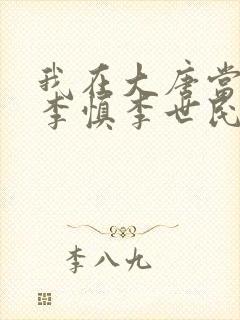 我在大唐当
李慎李世民
李八九